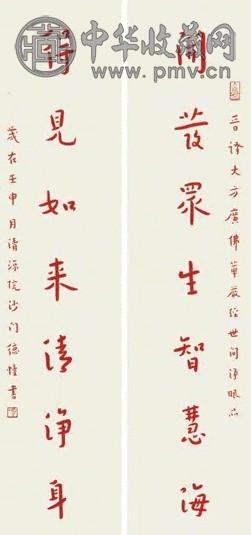 中华收藏网
www.pmv.cn
晉譯大方廣佛華嚴經世間淨眼品
開發眾生智慧海
得見如来清淨身
歲在壬申月清源院沙門德幢書